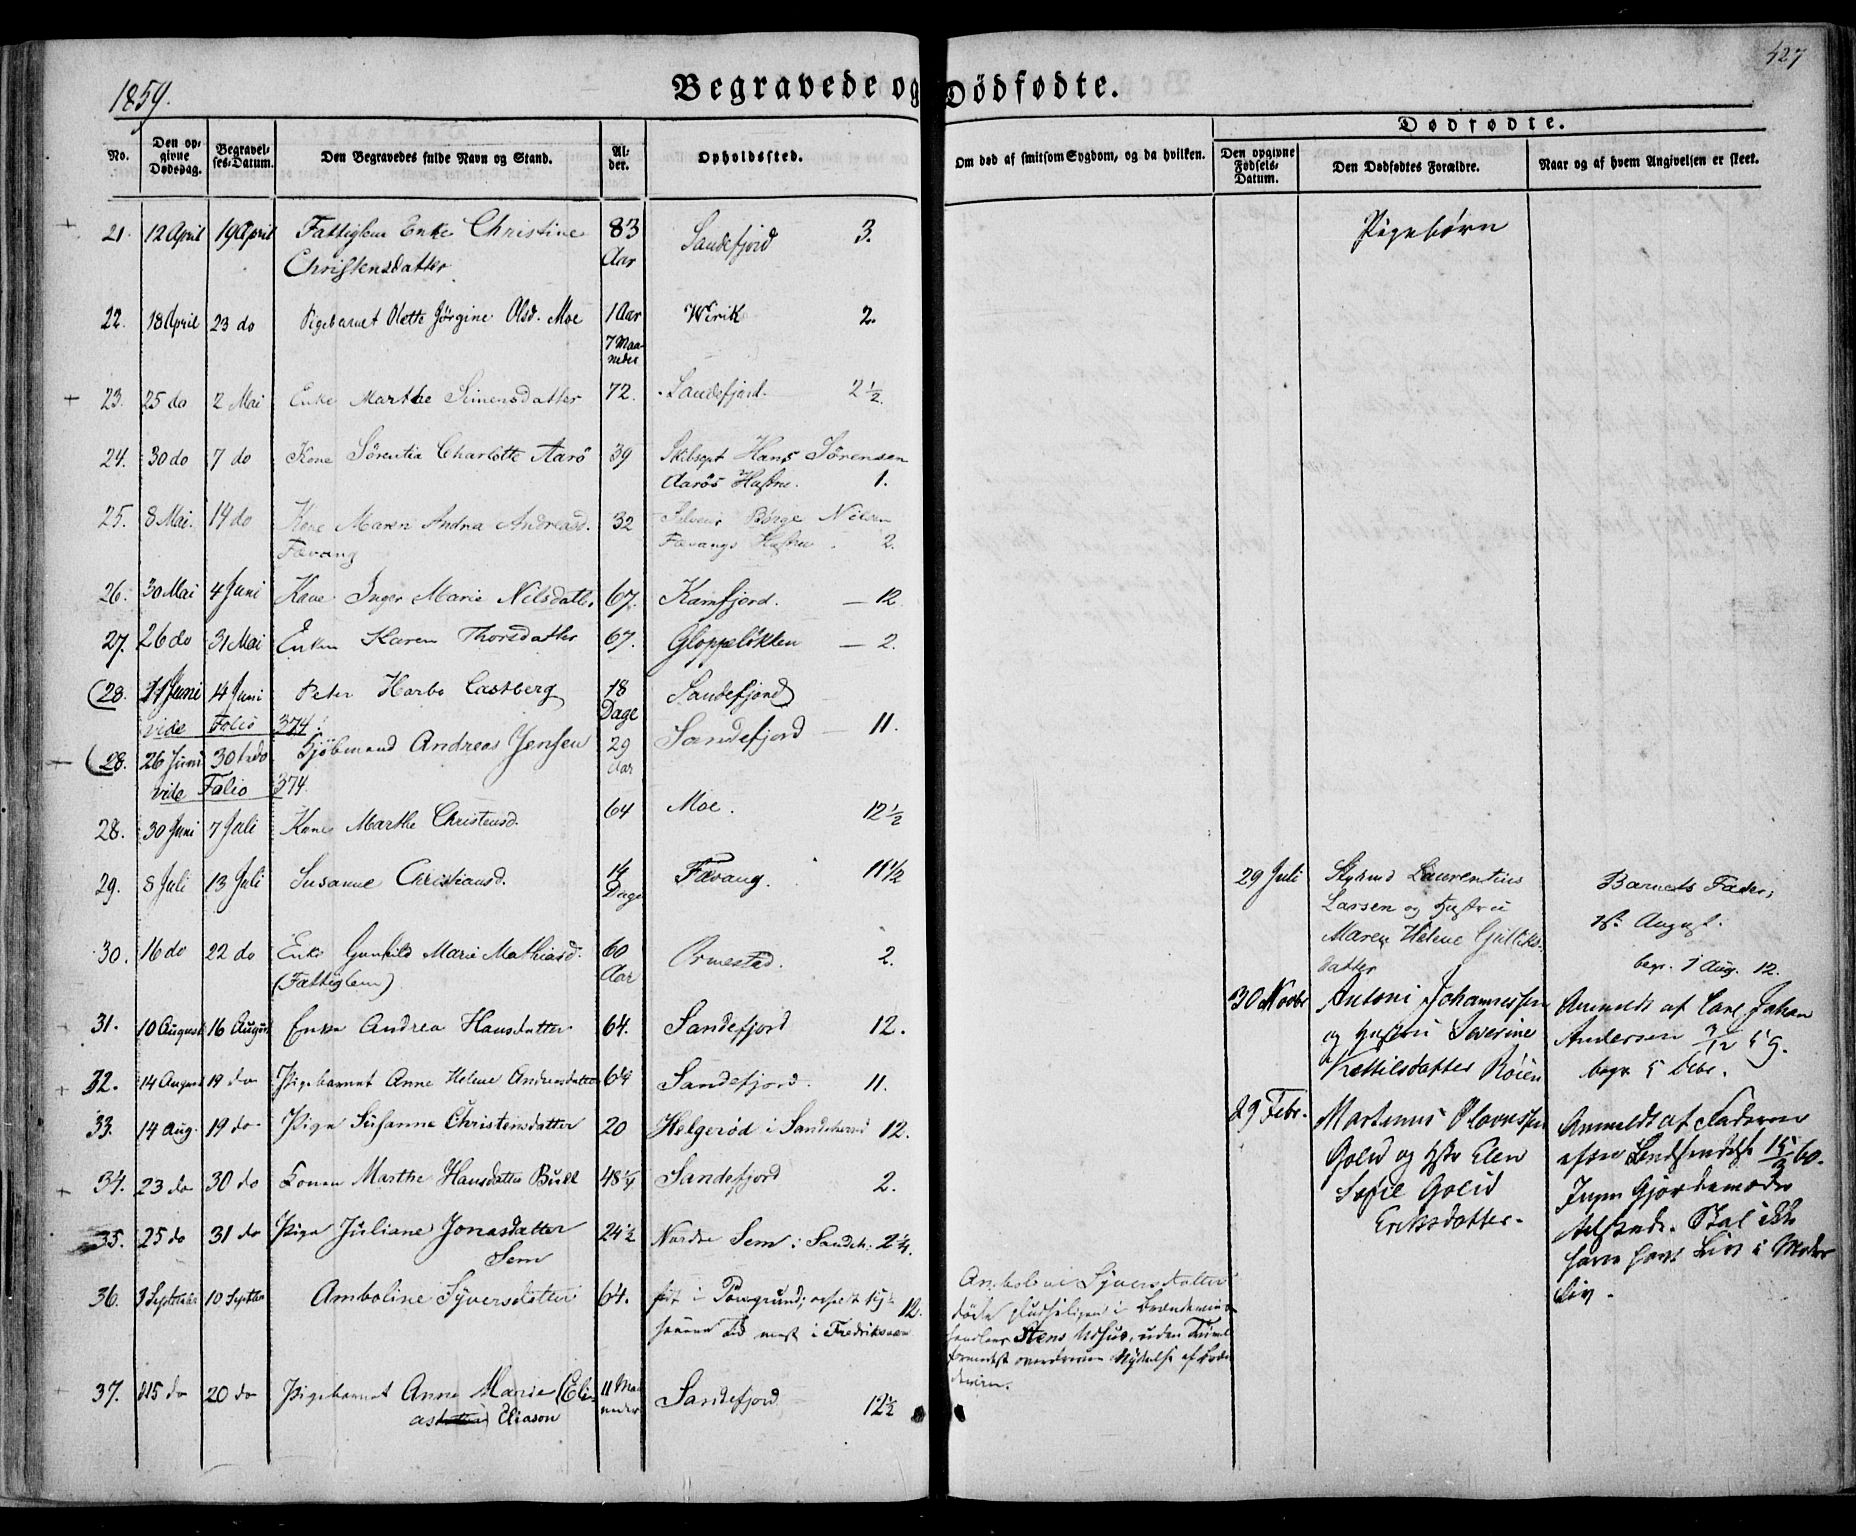 1859.
Begravede og Dødfødte.
427
No.
Den opgivne Dødsdag.
Begravelses-Datum.
Den Begravedes fulde Navn og Stand.
Alder.
Opholdssted.
Om død af smitsom Sygdom, og da hvilken.
Dødfødte.
Den opgivne Fødsels-Datum.
Den Dødfødtes Forældre.
Naar og af hvem Angivelsen er skeet.
Pigebørn
21. 12 April 19 April Fattiglem Enke Christine 83 Sandefjord 3.
Christensdatter Aar
22. 18 April 23 do Pigebarnet Olette Jørgine Olsd. Moe 1 Aar Wirik 2.
7 Maaneder
23. 25 do 2 Mai Enke Marthe Simensdatter 72. Sandefjord. 2½
24. 30 do 7 do Kone Sørentia Charlotte Aarö 39 Skibscpt Hans Sörensen
Aarös Hustru. 1.
25. 8 Mai. 14 do Kone Maren Andrea Andreasd. 32 Selveier Börge Nilsen
Fævang Fævangs Hustru. 2.
26. 30 Mai 4 Juni Kone Inger Marie Nilsdatter 67. Kamfjord. — 12
27. 26 do 31 Mai Enken Karen Thorsdatter 67. Gloppeløkken — 2.
(28. 11 Juni 14 Juni Peter Harbo Castberg 18 Sandefjord
vide Folio 374. Dage
(28. 26 Juni 30 Kjøbmand Andreas Jensen 29 Sandefjord — 11.
vide Folio 374. Aar
28. 30 Juni 7 Juli Kone Marthe Christensd. 64 Moe. 12½
29. 8 Juli 13 Juli Susanne Christiansd. 14 Fævang. 11½
Dage
30. 16 do 22 do Enke Gunhild Marie Mathiasd. 60 Ormestad. 2.
(Fattiglem) Aar
31. 10 August 16 August Enke Andrea Hansdatter 64. Sandefjord 12.
32. 14 August 19 do Pigebarnet Anne Helene Andreasdatter Sandefjord. 11.
33. 14 Aug. 19 do Pige Susanne Christensdatter 20 Helgerød i Sandeherred 12.
34. 23 do 30 do Konen Marthe Hansdatter Bull 48 Sandefjord 2.
35. 25 do 31 do Pige Juliane Jonasdatter 24½ Nordre Sem i Sandeh. 2¼.
Sem
36. 3 September 10 Septbr Amboline Syversdatter 64. født i Porsgrund; 12.
mest i Fredriksværn
37. 15 do 20 do Pigebarnet Anne Marie (Eli- 11 Maa- Sandefjord 12½
as Eliason neder
Amboline Syversdatter
døde pludseligen i Brændeviins-
handler Stens Udhus, uden Tvivl
formedelst overdreven Nydelse af Brænde-
deviin.
29 Juli Styrmd Laurentius
Larsen og Hustru
Maren Helene Gulliks-
datter
Barnets Fader,
1st August.
begr. 1 Aug. 12.
30 Novbr Antoni Johannessen
og Hustru Severine
Kettilsdatter Röien
Anmeldt af Carl Johan
Andersen 3/12 59.
begr. 5 Debr.
29 Febr. Martinus Olavessen
Golid og Hstr Elen
Sofie Golid
Eriksdatter.
Anmeldt af Faderen
15/3 60.
Ingen Gjordemoder
tilstede. Skal ikke
have havt Liv i Moders
Liv.